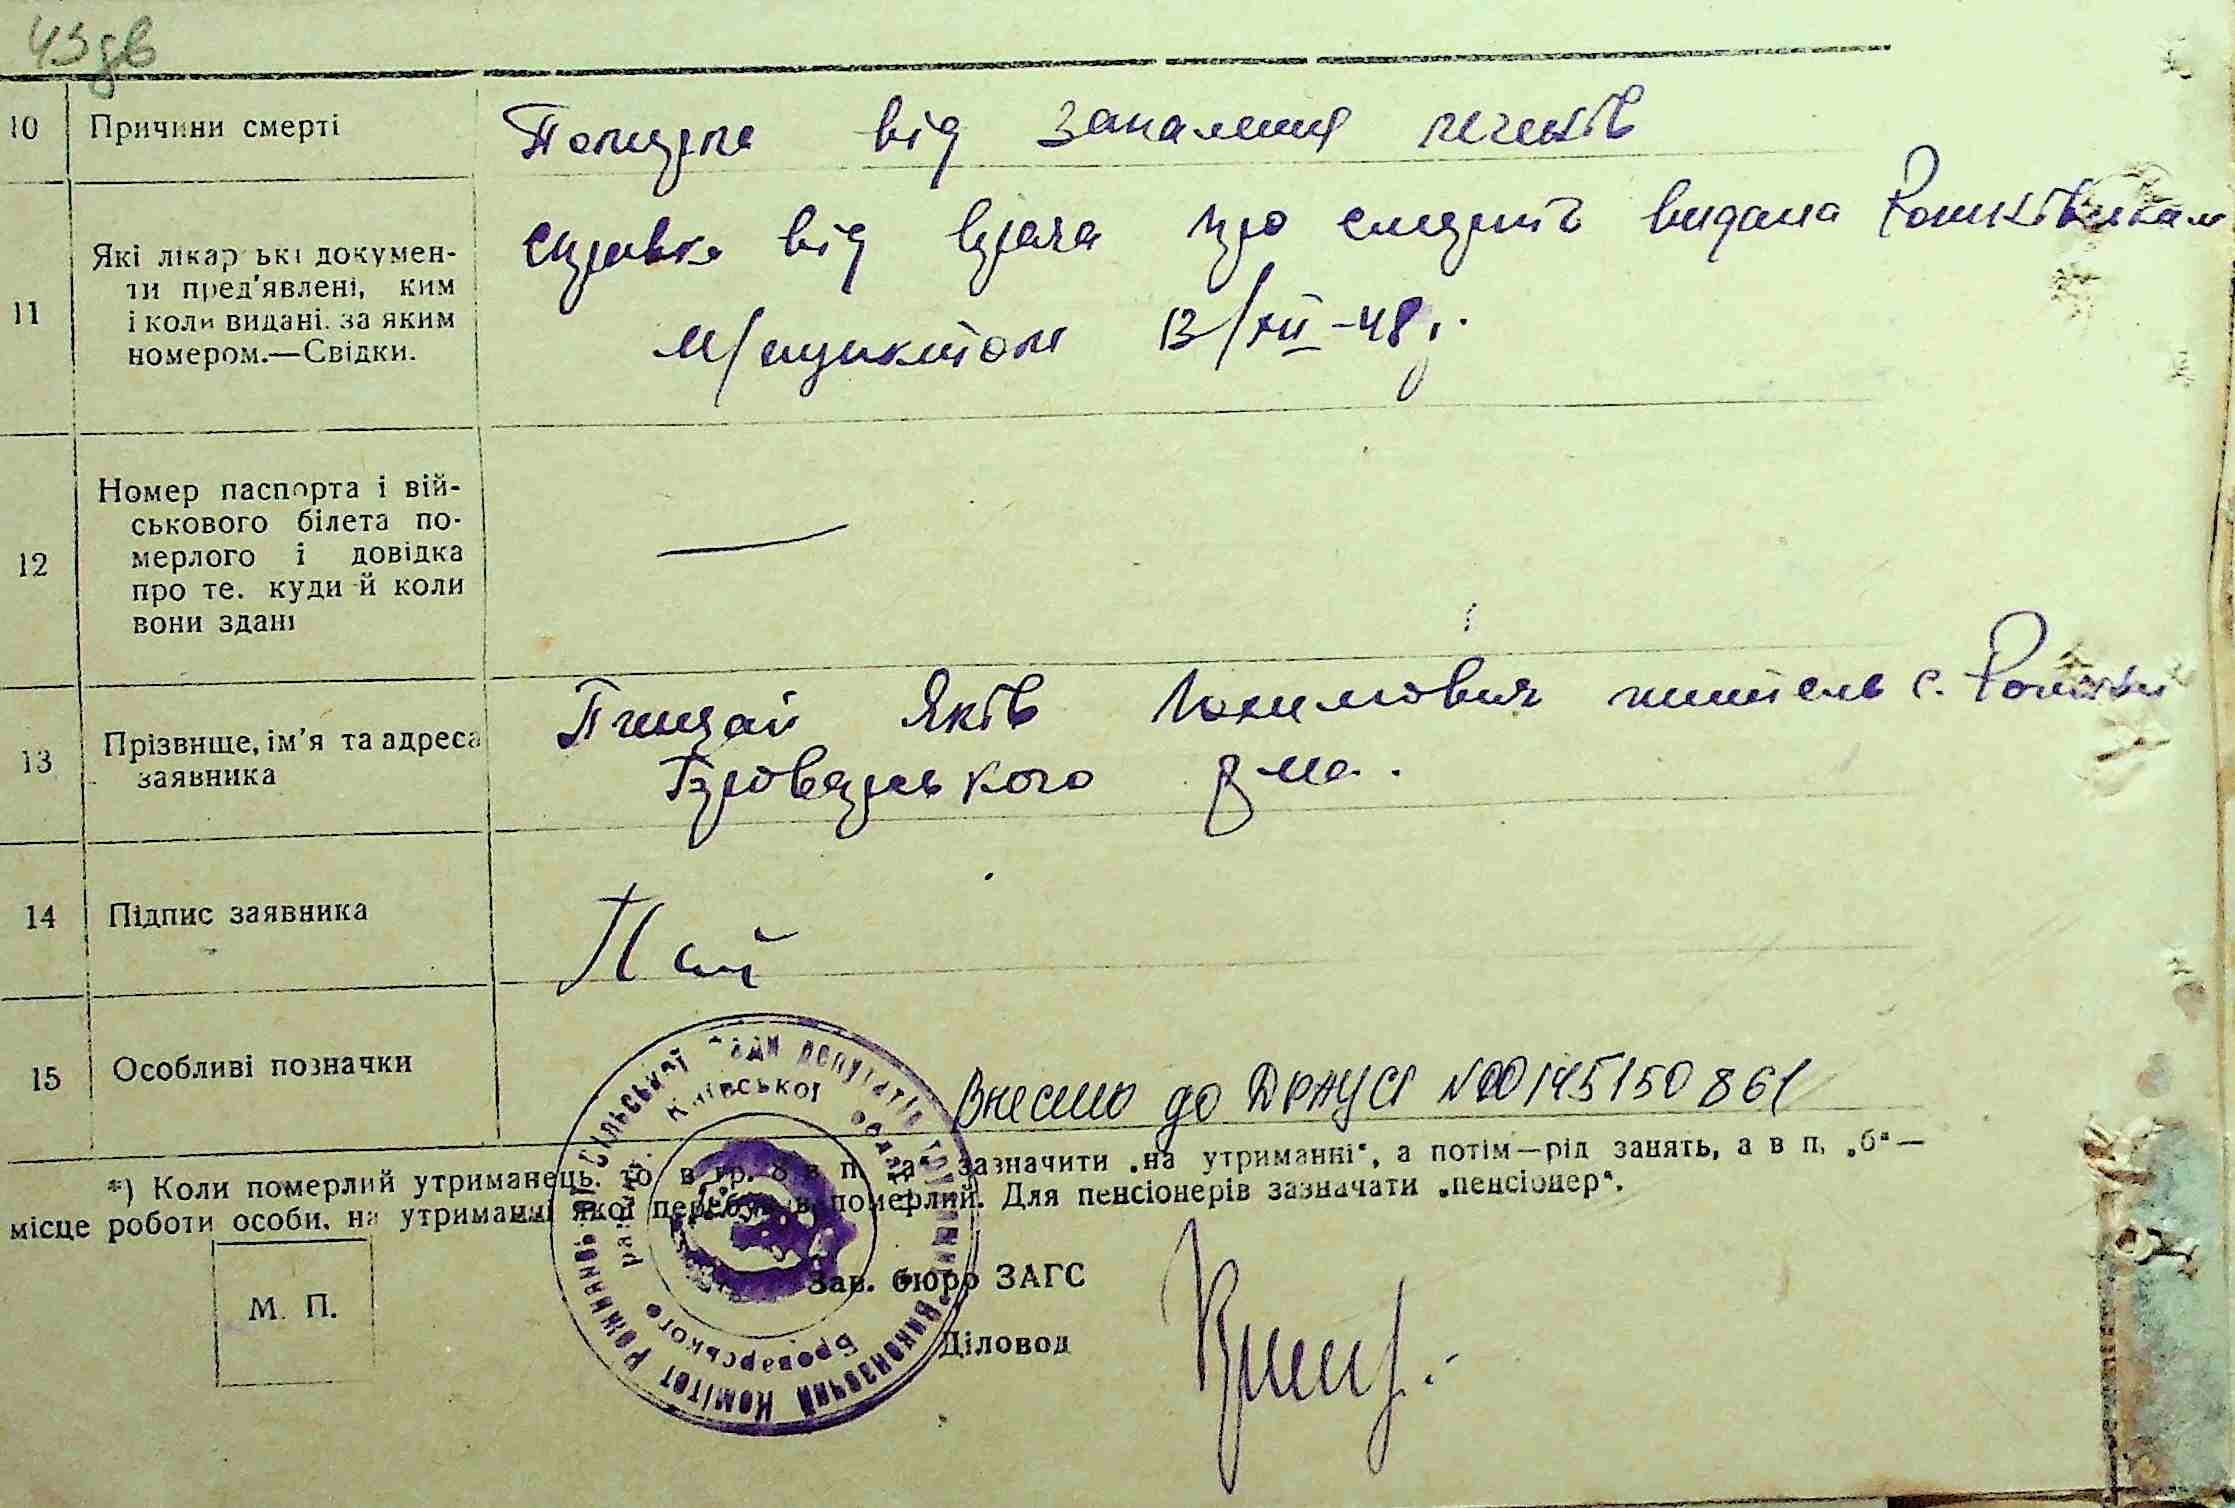 43 зв
10 Причини смерті
Помэрла від запалення легенів
11 Які лікарські докумен-
ти пред'явлені, ким
і коли видані, за яким
номером.—Свідки.
справка від врача про смерть видана
м/пунктом 13/XII-48 р.
12 Номер паспорта і вій-
ськового білета по-
мерлого і довідка
про те, куди й коли
вони здані
—
13 Прізвище, ім'я та адреса
заявника
Яків житель с.
Броварського р-на.
14 Підпис заявника
15 Особливі позначки
Внесено до ДРАЦСГ №00145150861
*) Коли померлий утриманець, то в гр. 8 в п. „а" зазначити „на утриманні", а потім—рід занять, а в п. „б"—
місце роботи особи, на утриманні якої перебував померлий. Для пенсіонерів зазначати „пенсіонер".
М. П.
Зав. бюро ЗАГС
Діловод
Виконавчий Комітет Рожнянської Сільської Ради депутатів трудящих
Броварського району Київської області